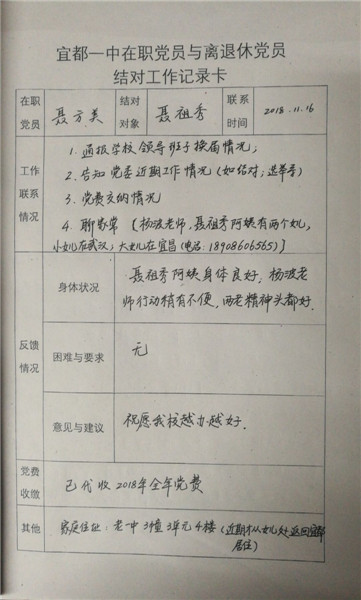 宜都一中在职党员与离退休党员
结对工作记录卡
在职党员 聂方美 结对对象 聂祖秀 联系时间 2018.11.16
工作联系情况
1. 通报学校领导班子换届情况；
2. 告知党委近期工作情况（如结对；选举等）
3. 党费交纳情况
4. 聊家常〔杨波老师，聂祖秀阿姨有两个女儿，
小女儿在武汉；大女儿在宜昌（电话：18908606565）〕
反馈情况
身体状况
聂祖秀阿姨身体良好；杨波老
师行动稍有不便，两老精神头都好．
困难与要求 无
意见与建议 祝愿我校越办越好．
党费收缴 已代收2018年全年党费
其他 家庭住址：老一中 3幢3单元4楼（近期才从女儿处返回宜都
居住）